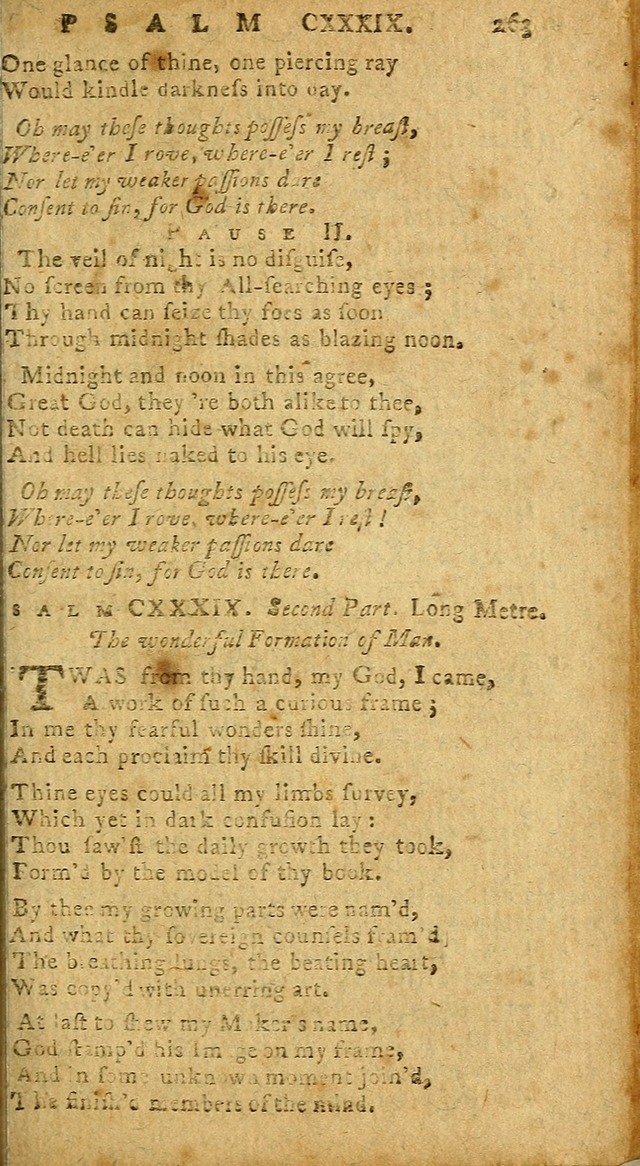 PSALM CXXXIX. 263
One glance of thine, one piercing ray
Would kindle darkneſs into day.
Oh may theſe thoughts poſſeſs my breaſt,
Where-e'er I rove, where-e'er I reſt ;
Nor let my weaker paſſions dare
Conſent to ſin, for God is there.
PAUSE II.
The veil of night is no diſguiſe,
No ſcreen from thy All-ſearching eyes ;
Thy hand can ſeize thy foes as ſoon
Through midnight ſhades as blazing noon.
Midnight and noon in this agree,
Great God, they 're both alike to thee,
Not death can hide what God will ſpy,
And hell lies naked to his eye.
Oh may theſe thoughts poſſeſs my breaſt,
Where-e'er I rove, where-e'er I reſt !
Nor let my weaker paſſions dare
Conſent to ſin, for God is there.
SALM CXXXIX. Second Part. Long Metre.
The wonderful Formation of Man.
TWAS from thy hand, my God, I came,
A work of ſuch a curious frame ;
In me thy fearful wonders ſhine,
And each proclaim thy ſkill divine.
Thine eyes could all my limbs ſurvey,
Which yet in dark confuſion lay :
Thou ſaw'ſt the daily growth they took,
Form'd by the model of thy book.
By thee my growing parts were nam'd,
And what thy ſovereign counſels fram'd,
The breathing lungs, the beating heart,
Was copy'd with unerring art.
At laſt to ſhew my Maker's name,
God ſtamp'd his image on my frame,
And in ſome unknown moment join'd,
The finiſh'd members of the mind.